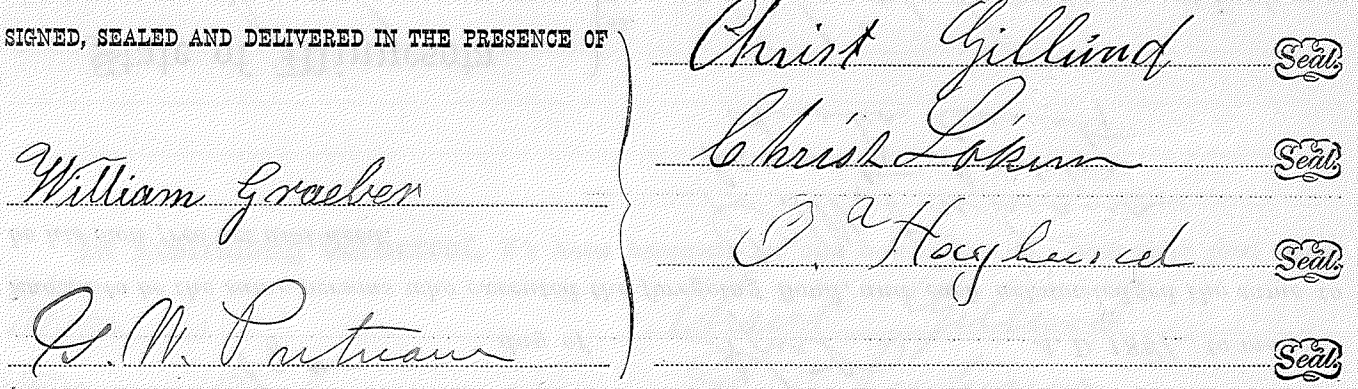 SIGNED, SEALED AND DELIVERED IN THE PRESENCE OF
William Graeber
G. W. Putnam
Christ Gillund Seal.
Christ Seal.
O. a Hoglund Seal.
Seal.